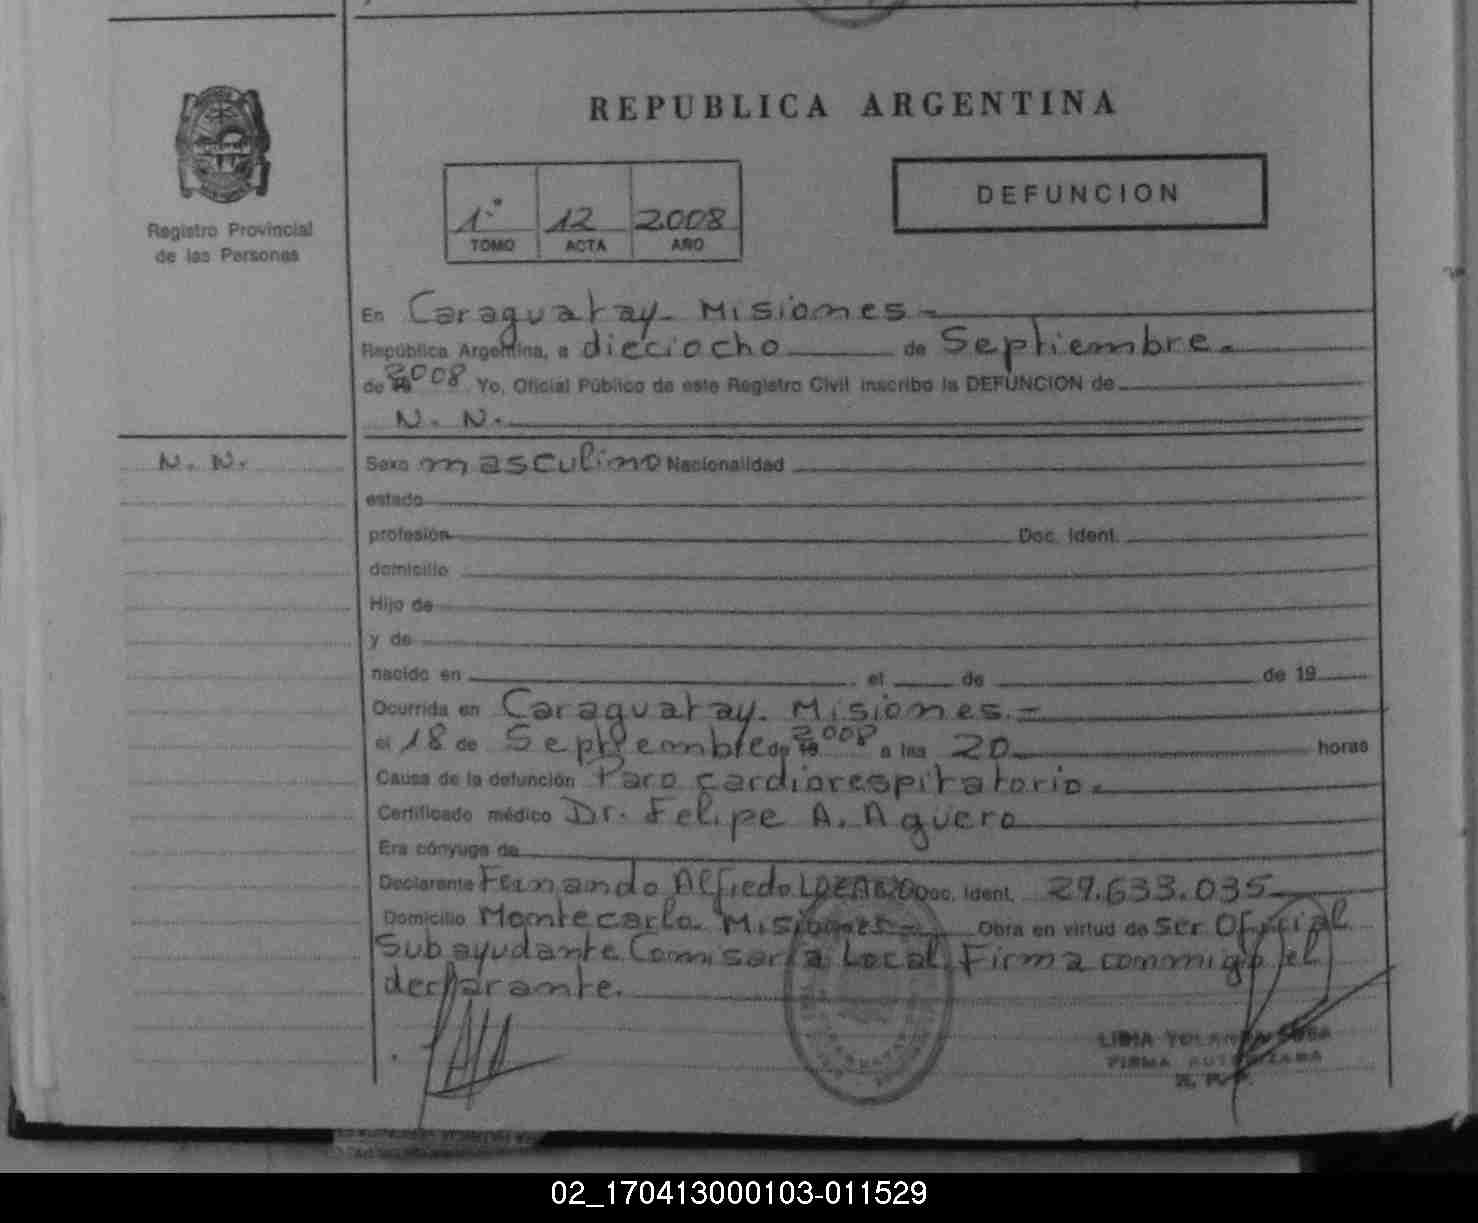 REPUBLICA ARGENTINA
Registro Provincial
de las Personas
1º 12 2008
TOMO ACTA AÑO
DEFUNCION
En Caraguatay - Misiones -
República Argentina, a dieciocho de Septiembre -
de 2008 Yo, Oficial Público de este Registro Civil inscribo la DEFUNCION de
N. N.
N. N.
Sexo masculino Nacionalidad
estado
profesión Doc. Ident.
domicilio
Hijo de
y de
nacido en el de de 19
Ocurrida en Caraguatay - Misiones. -
el 18 de Septiembre de 2008 a las 20 horas
Causa de la defunción Paro cardiorespiratorio -
Certificado médico Dr. Felipe A. Agüero
Era cónyuge de
Declarante Fernando Alfredo Doc. Ident. 29.633.035
Domicilio Montecarlo - Misiones - Obra en virtud de ser Oficial
Subayudante Comisaría Local. Firma conmigo el
declarante.
FIRMA AUTORIZADA
02_170413000103-011529